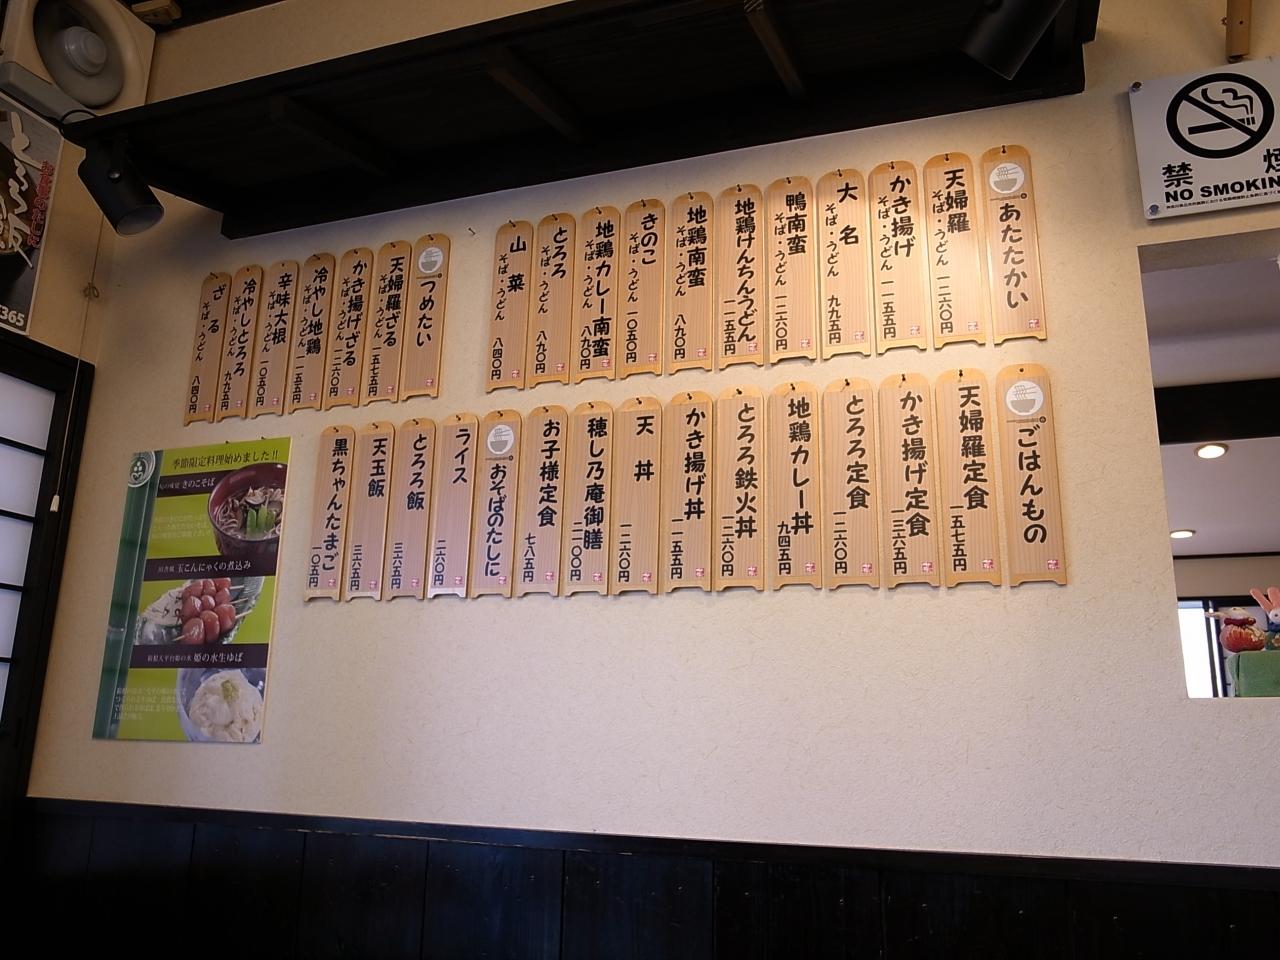 あたたかい
天婦羅 そば・うどん 一二六〇円
かき揚げ そば・うどん 一一五五円
大名 そば・うどん 九九五円
鴨南蛮 そば・うどん 一二六〇円
地鶏けんちんうどん 一一五五円
地鶏南蛮 そば・うどん 八九〇円
きのこ そば・うどん 一〇五〇円
地鶏カレー南蛮 そば・うどん 八九〇円
とろろ そば・うどん 八九〇円
山菜 そば・うどん 八四〇円
つめたい
天婦羅ざる そば・うどん 一五七五円
かき揚げざる そば・うどん 一二六〇円
冷やし地鶏 そば・うどん 一一五五円
辛味大根 そば・うどん 一〇五〇円
冷やしとろろ そば・うどん 九九五円
ざる そば・うどん 八四〇円
ごはんもの
天婦羅定食 一五七五円
かき揚げ定食 一三六五円
とろろ定食 一二六〇円
地鶏カレー丼 九四五円
とろろ鉄火丼 一二六〇円
かき揚げ丼 一一五五円
天丼 一二六〇円
穂し乃庵御膳 二一〇〇円
お子様定食 七八五円
おそばのたしに
ライス 二一〇円
とろろ飯 三六五円
天玉飯 三六五円
黒ちゃんたまご 一〇五円
季節限定料理始めました!!
旬の味覚 きのこそば
田舎風 玉こんにゃくの煮込み
箱根大平台姫の水 姫の水生ゆば
とろろ飯
365
禁煙
NO SMOKIN